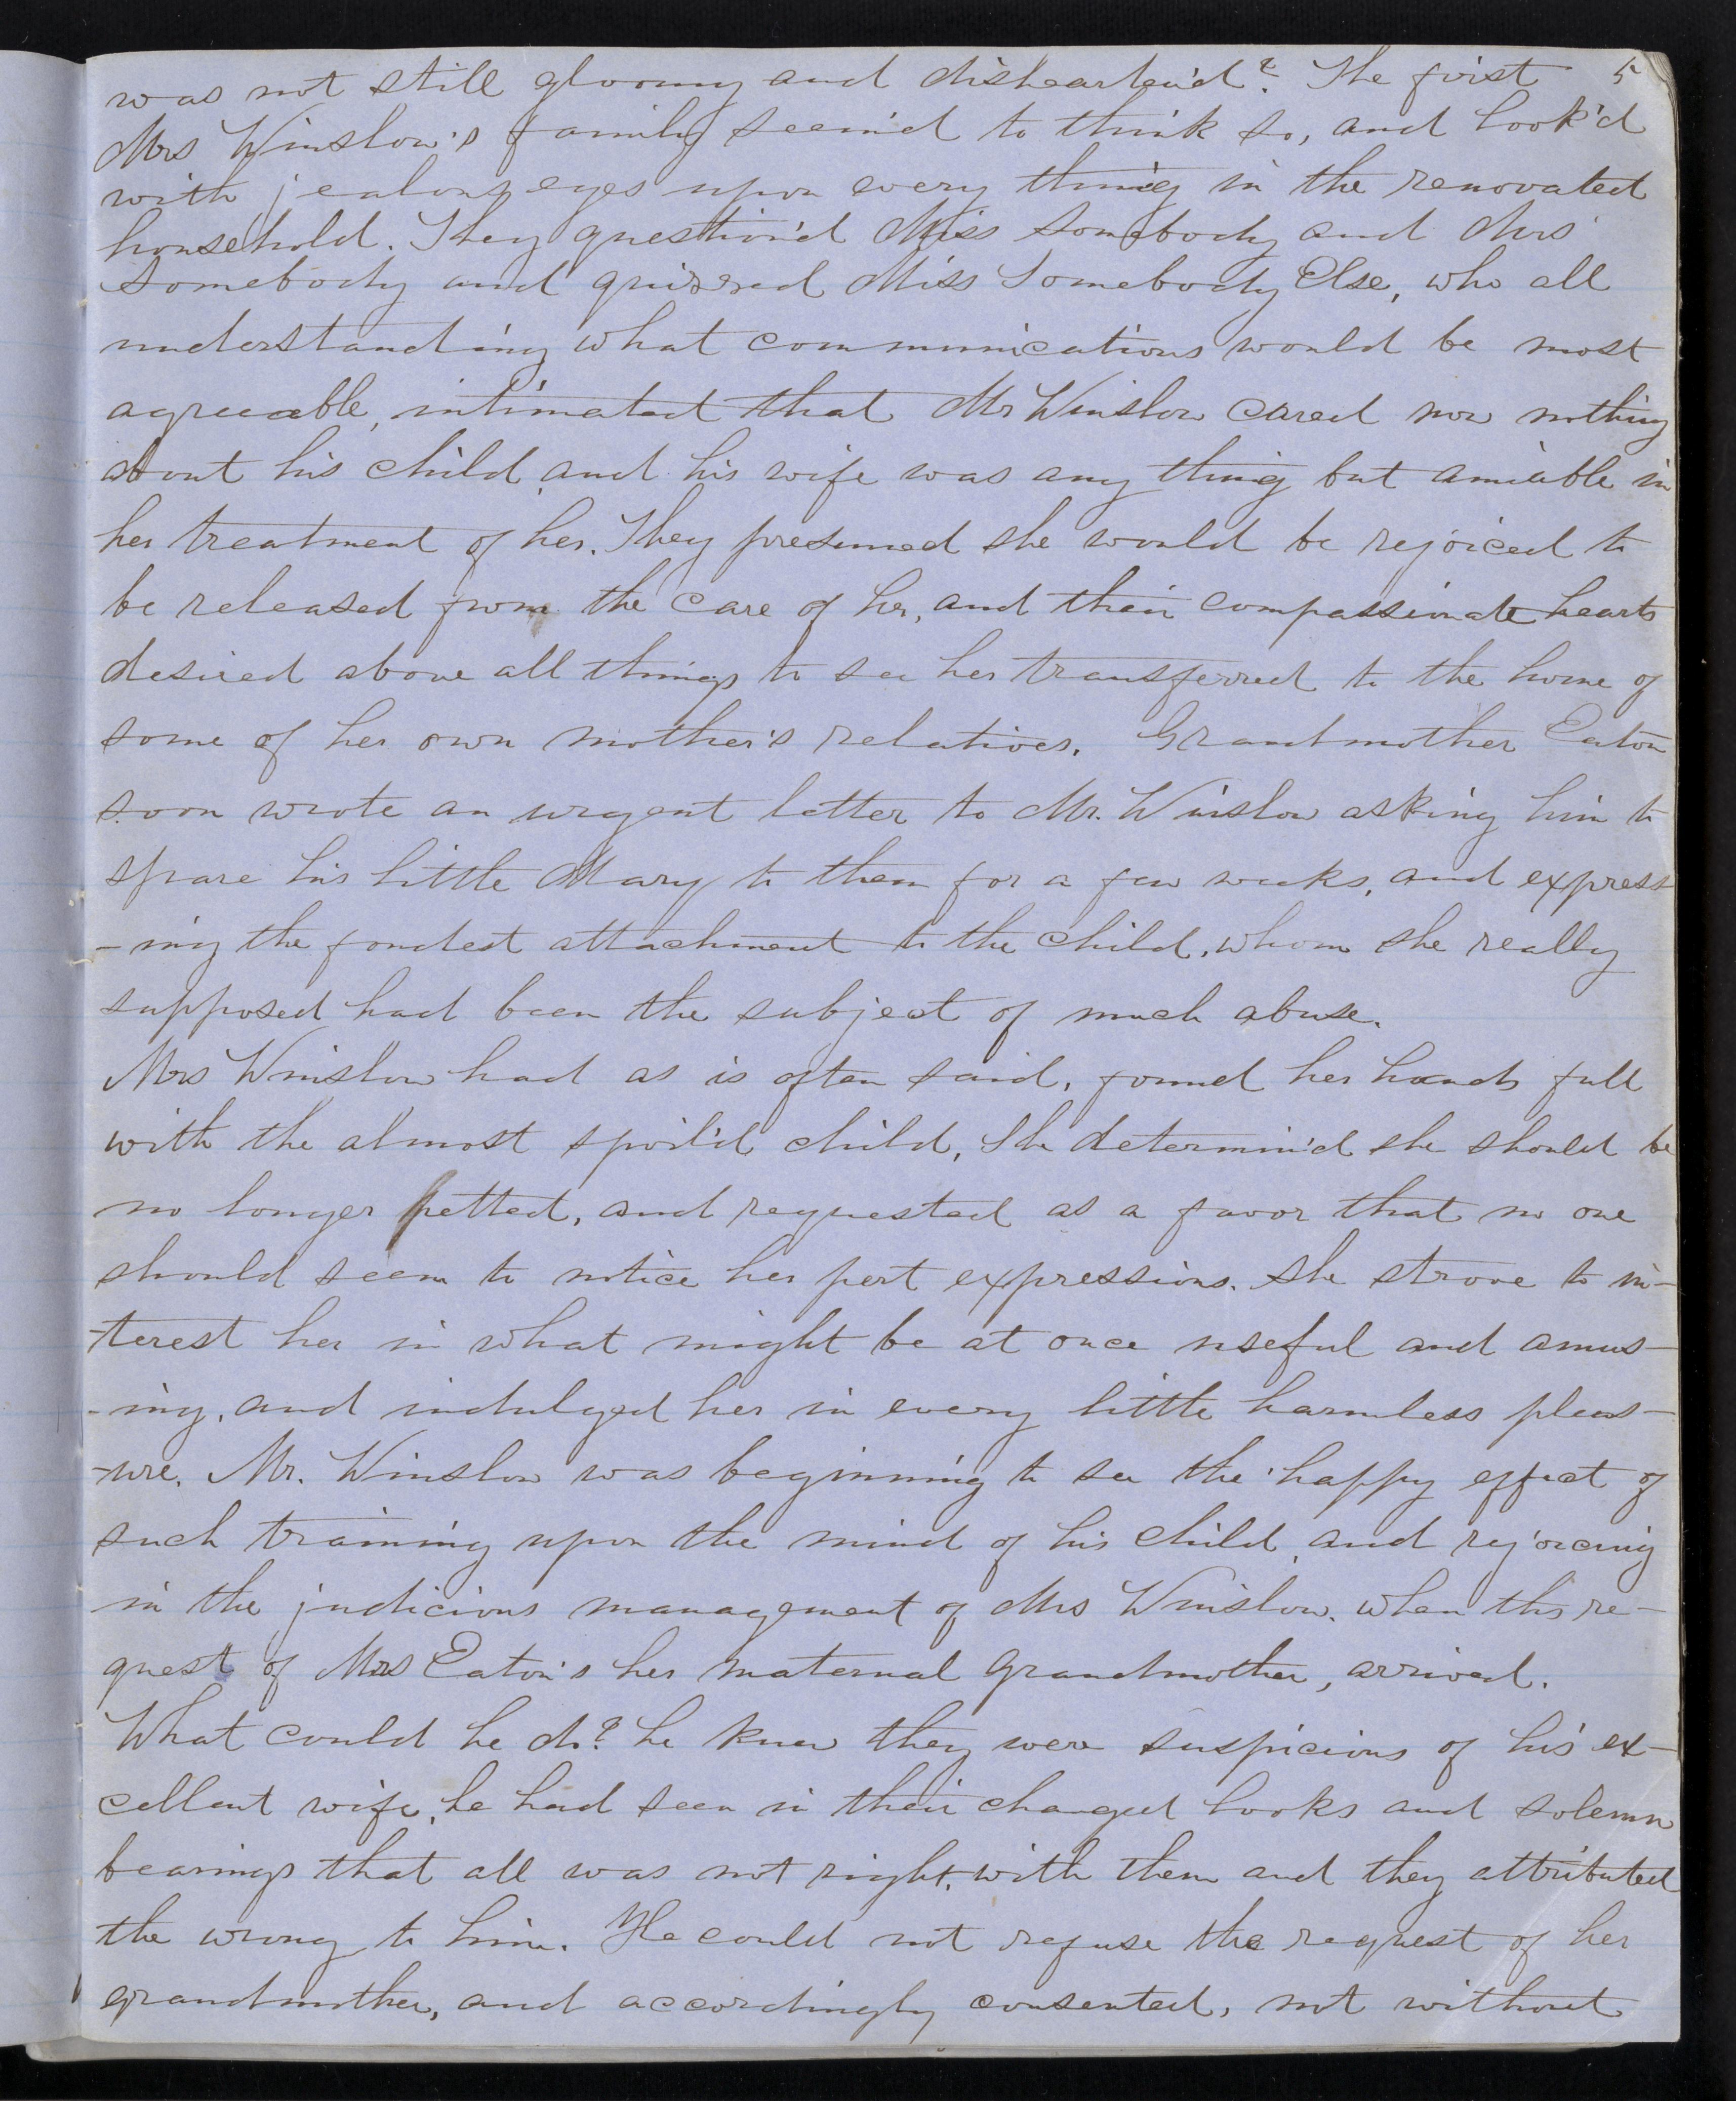 was not still gloomy and dishearten'd? The first 5
Mrs Winslow's family seem'd to think so, and look'd
with jealous eyes upon every thing in the renovated
household. They question'd Miss Somebody and Mrs
Somebody and quizzed Miss Somebody Else, who all
understanding what communications would be most
agreeable, intimated that Mr Winslow cared now nothing
about his child and his wife was any thing but amiable in
her treatment of her. They presumed she would be rejoiced to
be released from the care of her, and their compassionate hearts
desired above all things to see her transferred to the home of
some of her own mother's relatives. Grandmother Eaton
soon wrote an urgent letter to Mr. Winslow asking him to
spare his little Mary to them for a few weeks, and express
-ing the fondest attachment to the child, whom she really
supposed had been the subject of much abuse.
Mrs Winslow had as is often said, found her hands full
with the almost spoil'd child, She determin'd she should be
no longer petted, and requested as a favor that no one
should seem to notice her pert expressions. She strove to in-
-terest her in what might be at once useful and amus-
-ing, and indulged her in every little harmless pleas-
-ure. Mr. Winslow was beginning to see the happy effect of
such training upon the mind of his child, and rejoicing
in the judicious management of Mrs Winslow, when this re-
quest of Mrs Eaton's her maternal grandmother, arrived.
What could he do? he knew they were suspicious of his ex-
cellent wife, he had seen in their changed looks and solemn
bearings that all was not right, with them and they attributed
the wrong to him. He could not refuse the request of her
grandmother, and accordingly consented, not without